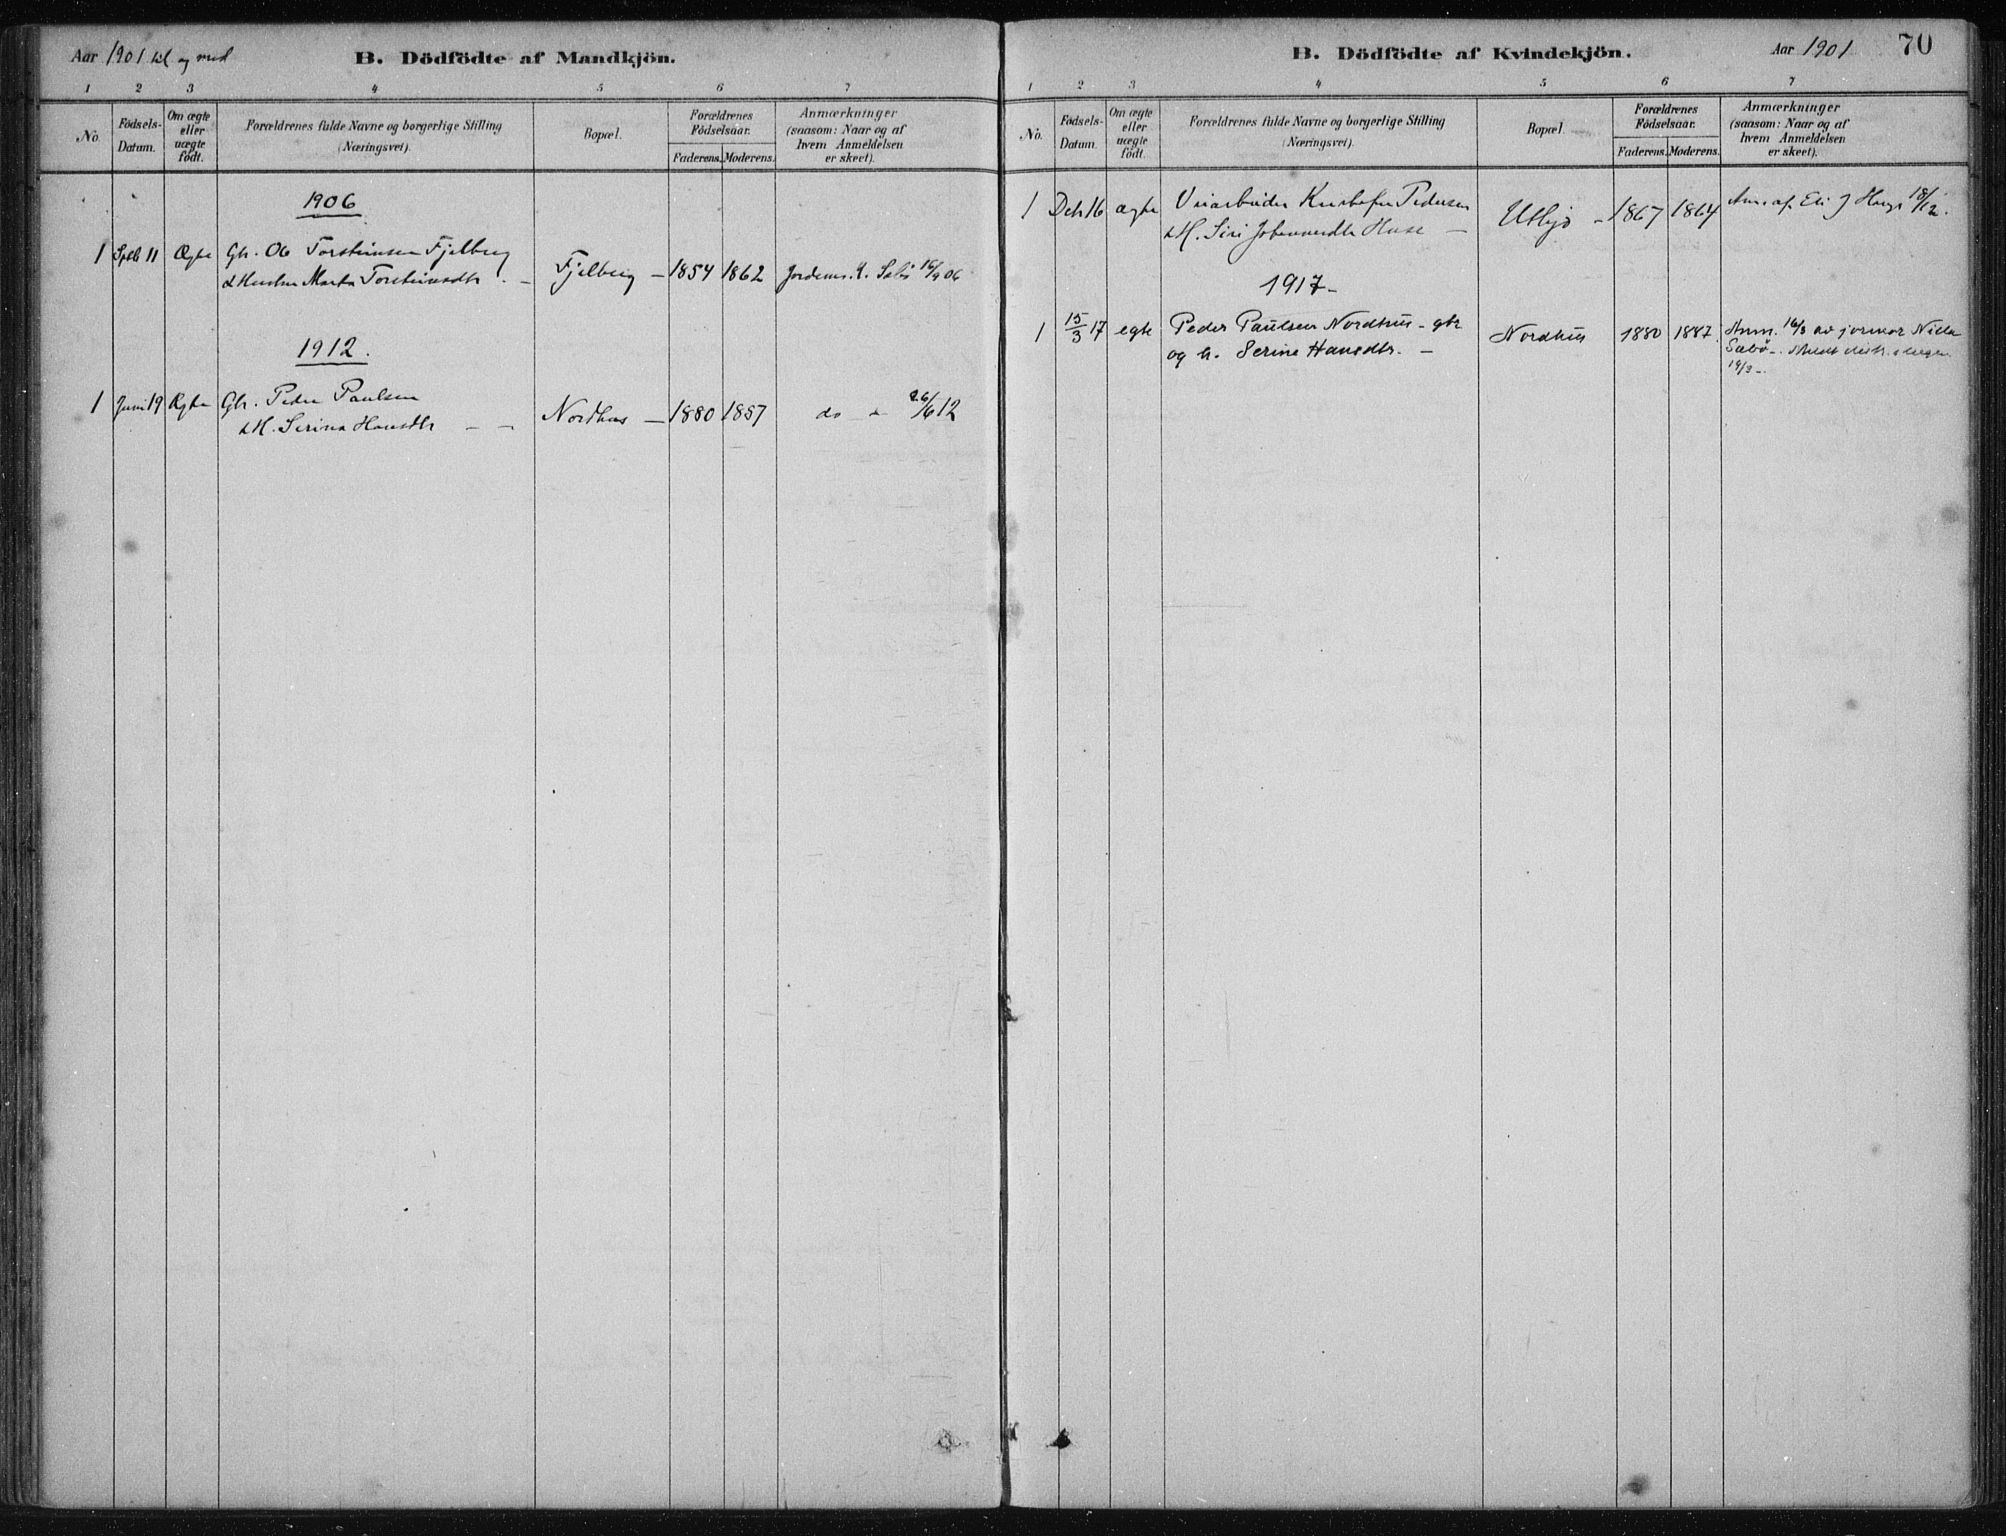 Aar 1901 til og med
B. Dödfödte af Mandkjön.
1 2 3 4 5 6 7
No.
Födsels-
Datum.
Om ægte
eller
uægte
födt.
Forældrenes fulde Navne og borgerlige Stilling
(Næringsvei).
Bopæl.
Forældrenes
Födselsaar.
Faderens. Moderens.
Anmærkninger
(saasom: Naar og af
hvem Anmeldelsen
er skeet).
1906
1 Sptb 11 Ægte Gbr. Ole Torsteinsen Fjelberg
& Hustru Marta Torsteinsdtr. - Fjelberg - 1854 1862 Jordem. Sæbö 06
1912.
1 Juni 19 Ægte Gbr. Peder Paulsen
& H. Serina Hansdtr - - Nordhus - 1880 1887 do 26/6 12
B. Dödfödte af Kvindekjön.
Aar 1901
70
1 2 3 4 5 6 7
No.
Födsels-
Datum.
Om ægte
eller
uægte
födt.
Forældrenes fulde Navne og borgerlige Stilling
(Næringsvei).
Bopæl.
Forældrenes
Födselsaar.
Faderens. Moderens.
Anmærkninger
(saasom: Naar og af
hvem Anmeldelsen
er skeet).
1 Debr 16 ægte Veiarbeider Kristofer Pedersen
& H. Siri Johannesdtr - - 1867 1864 Anm. af 18/12.
1917-
1 15/3 17 egte Peder Paulsen Nordhus - gbr
og h. Serine Hansdtr. - Nordhus 1880 1887. Anm. 16/3 av jormor
Sæbö -
19/3 -